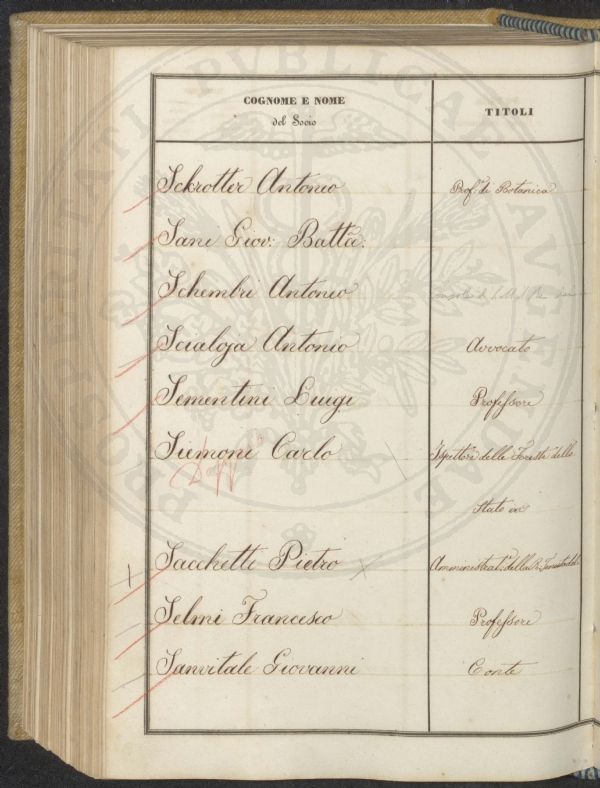 COGNOME E NOME
del Socio
TITOLI
Sckrotter Antonio Prof.e di Botanica
Sani Giov: Batta:
Schembri Antonio
Scialoja Antonio Avvocato
Sementini Luigi Professore
Siemoni Carlo Ispettore delle Foreste dello
Stato ec
Sacchetti Pietro Amministrat.e della R.
Selmi Francesco Professore
Sanvitale Giovanni Conte
PROSPERITATI PUBLICAE AUGENDAE